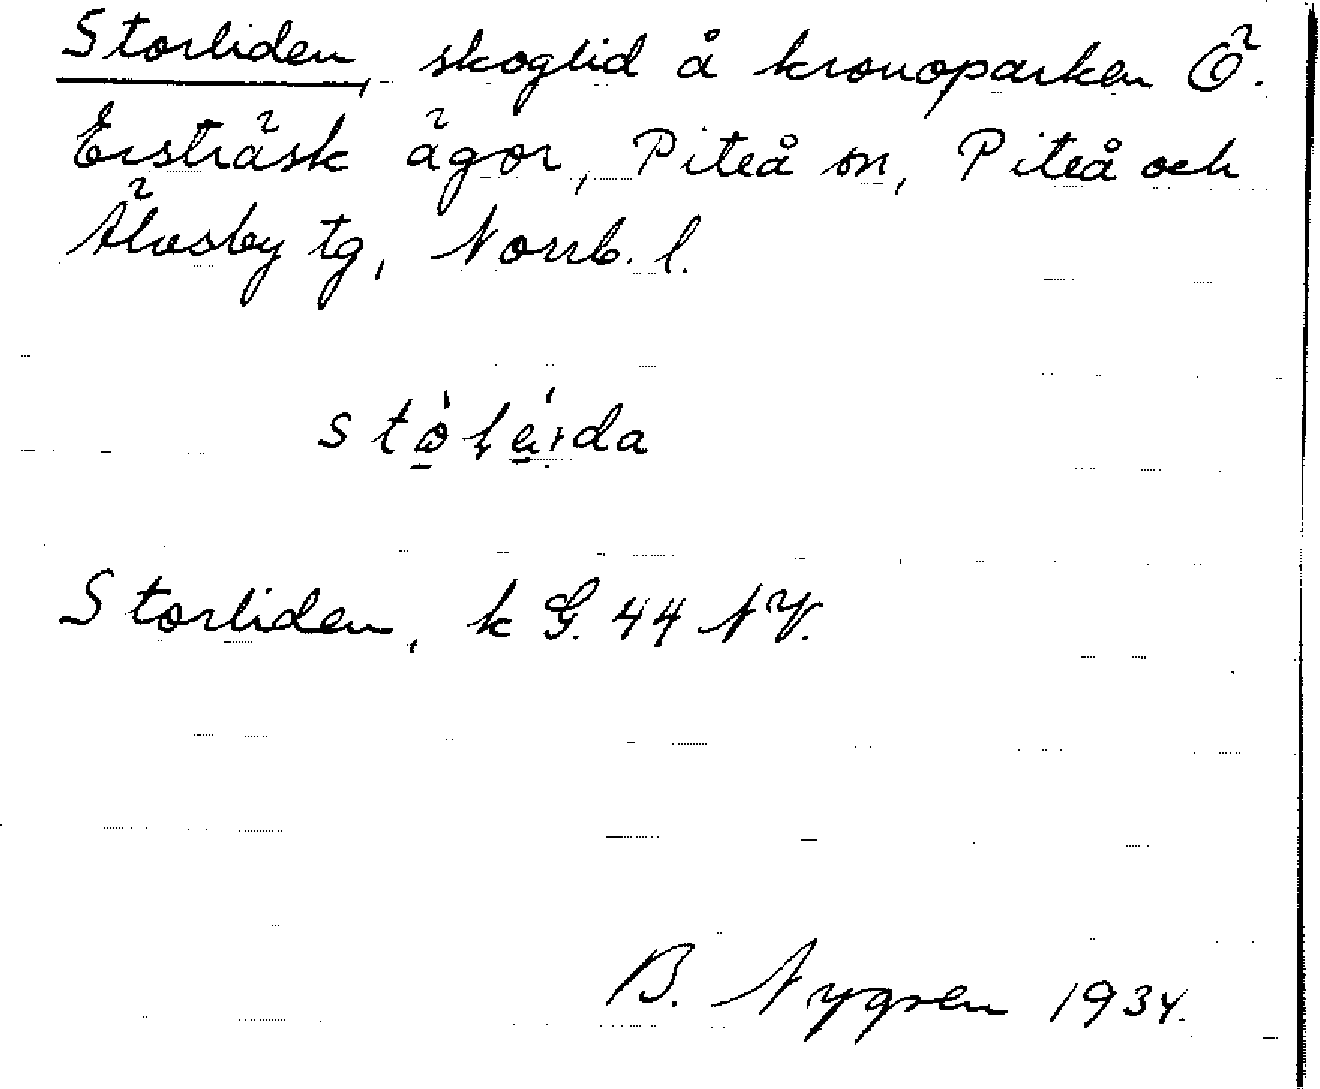 Storliden, skoglid å kronoparken Ö.
Ersträsk ägor, Piteå sn, Piteå och
Älvsby tg, Norrb. l.
Storliden, k G. 44 NV.
B. Nygren 1934.